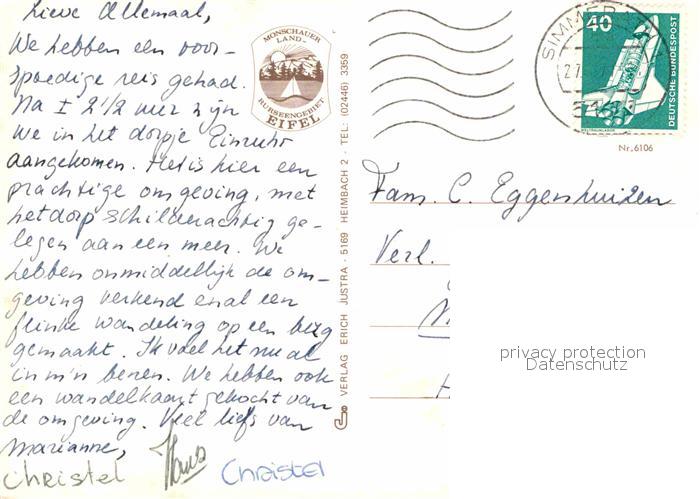 Lieve Allemaal,
We hebben een voor-
spoedige reis gehad.
Na ± 2 1/2 uur zijn
we in het dorpje Einruhr
aangekomen. Het is hier een
prachtige omgeving, met
het dorp schilderachtig ge-
legen aan een meer. We
hebben onmiddellijk de om-
geving verkend en al een
flinke wandeling op een berg
gemaakt. Ik voel het nu al
in m'n benen. We hebben ook
een wandelkaart gekocht van
de omgeving. Veel liefs van
Marianne,
Christel Hans Christel
MONSCHAUER
LAND-
RURSEENGEBIET
EIFEL
VERLAG ERICH JUSTRA · 5169 HEIMBACH 2 · TEL: (02446) 3359
SIMMERATH
40
DEUTSCHE BUNDESPOST
WELTRAUMLABOR
Nr. 6106
Fam. C. Eggenhuizen
Verl.
privacy protection
Datenschutz